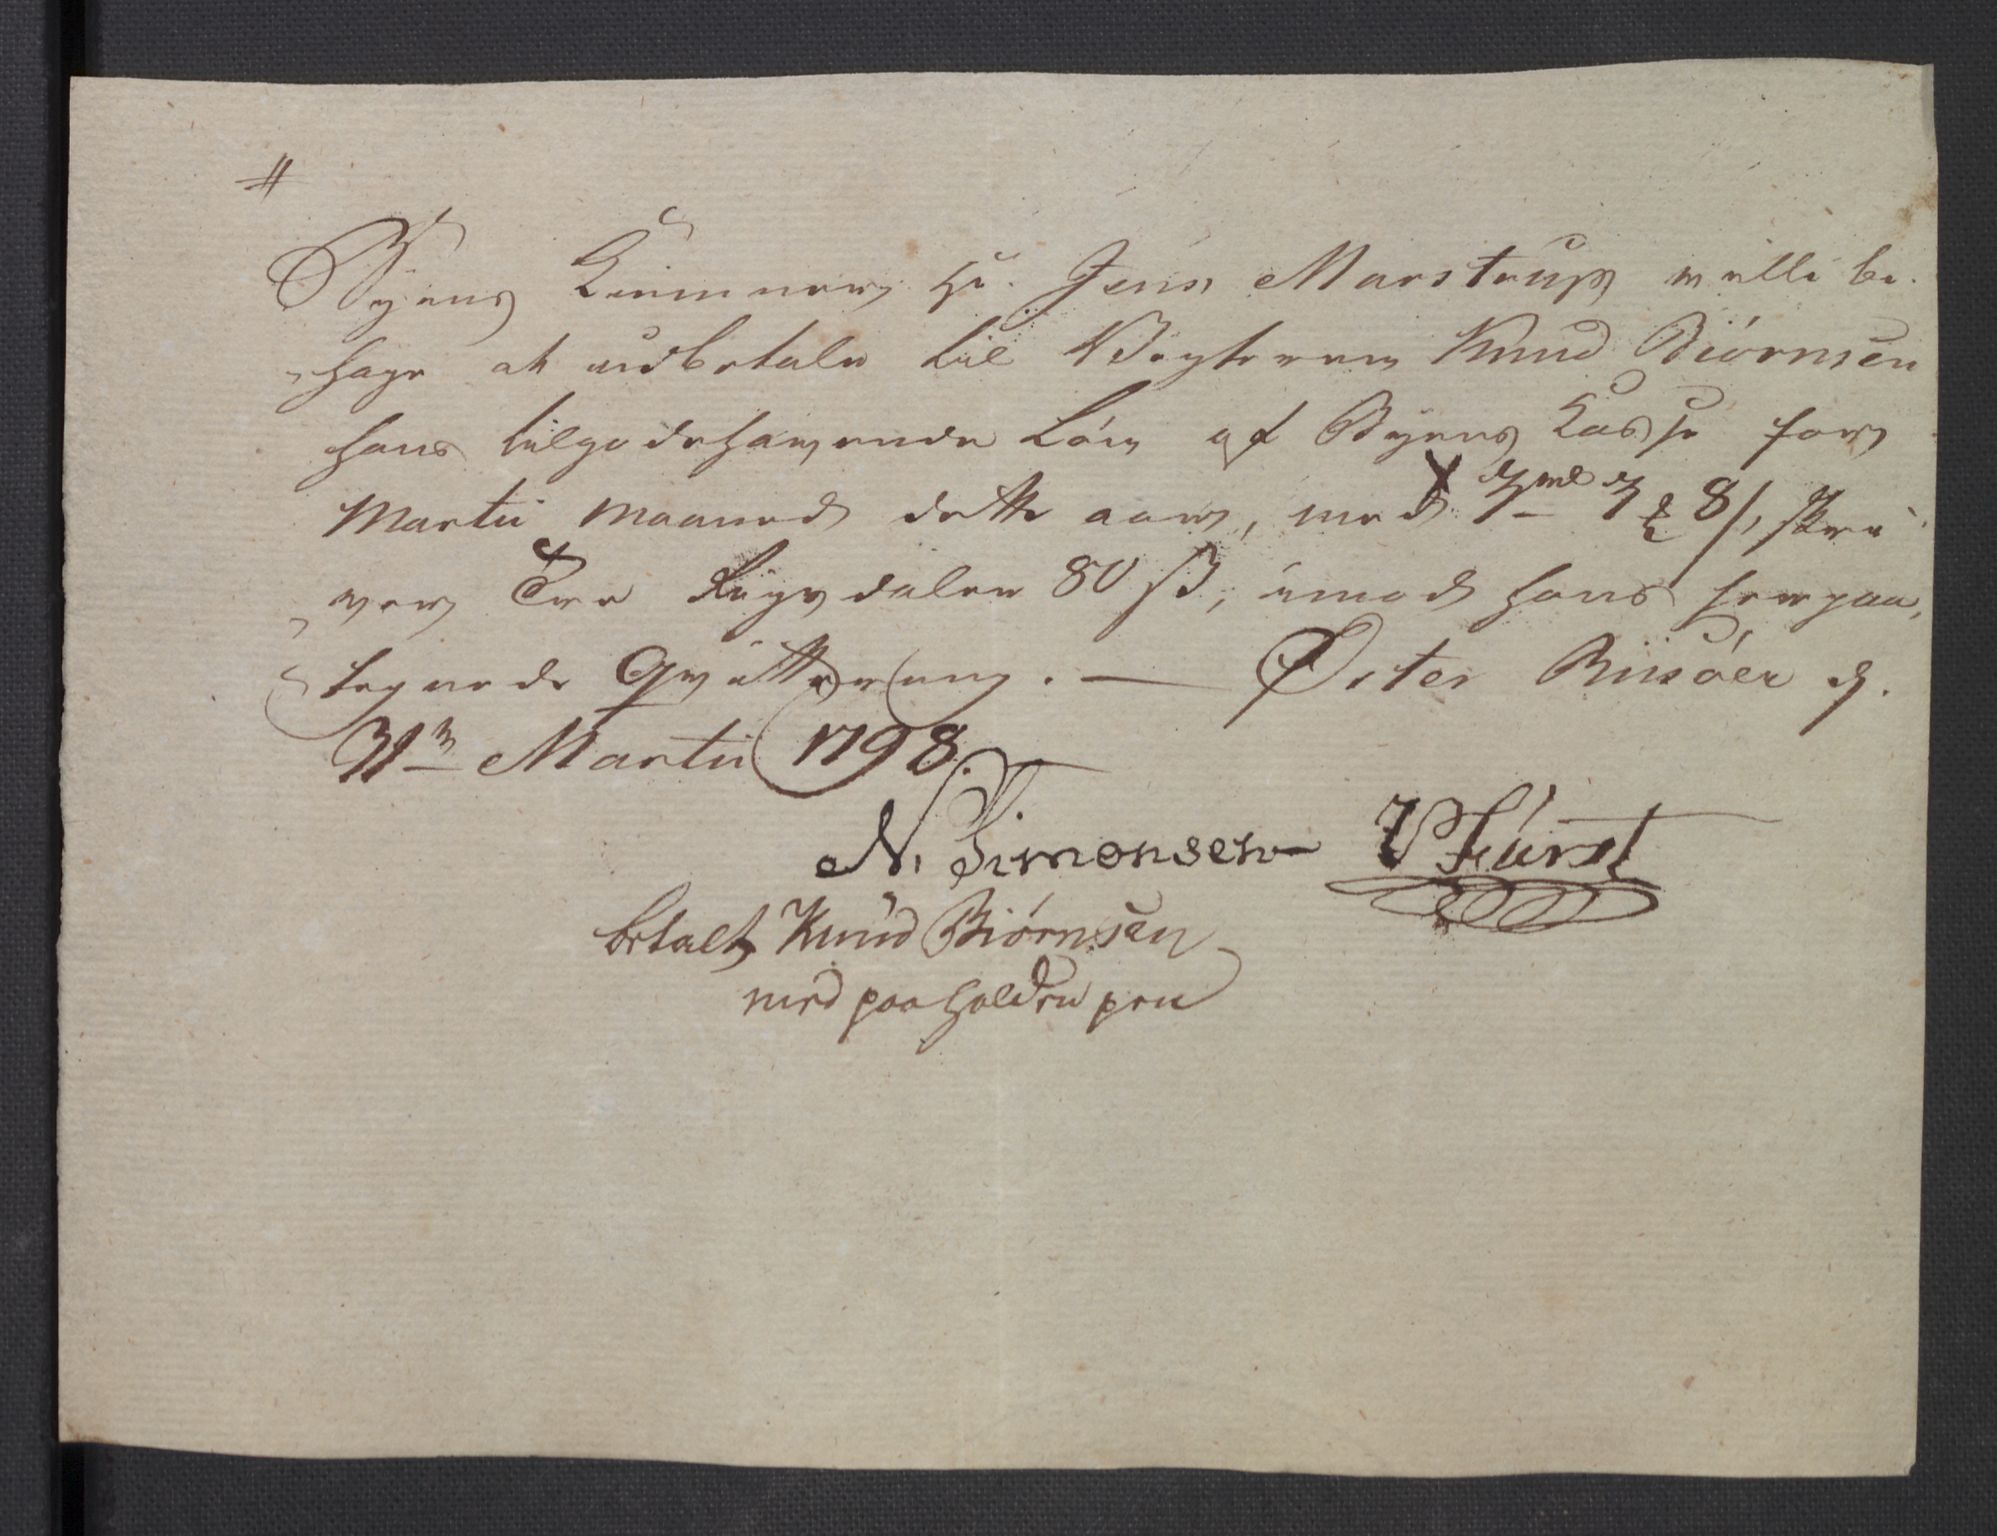 #
Byens Kiemner Hr. Jens Marstrup ville be-
hage at udbetale til Vægteren Knud Biörnsen
hans tilgodehavende Lön af Byens Kasse for
Martii Maaned dette aar, med 3 8/, skri-
ver Tre Rigsdaler 80 ß, imod hans herpaa
tegnede Qvittering. — Öster Riisöer d.
31te Martii 1798.
N. Simonsen Fürst
betalt Knud Biörnsen
med paaholden pen